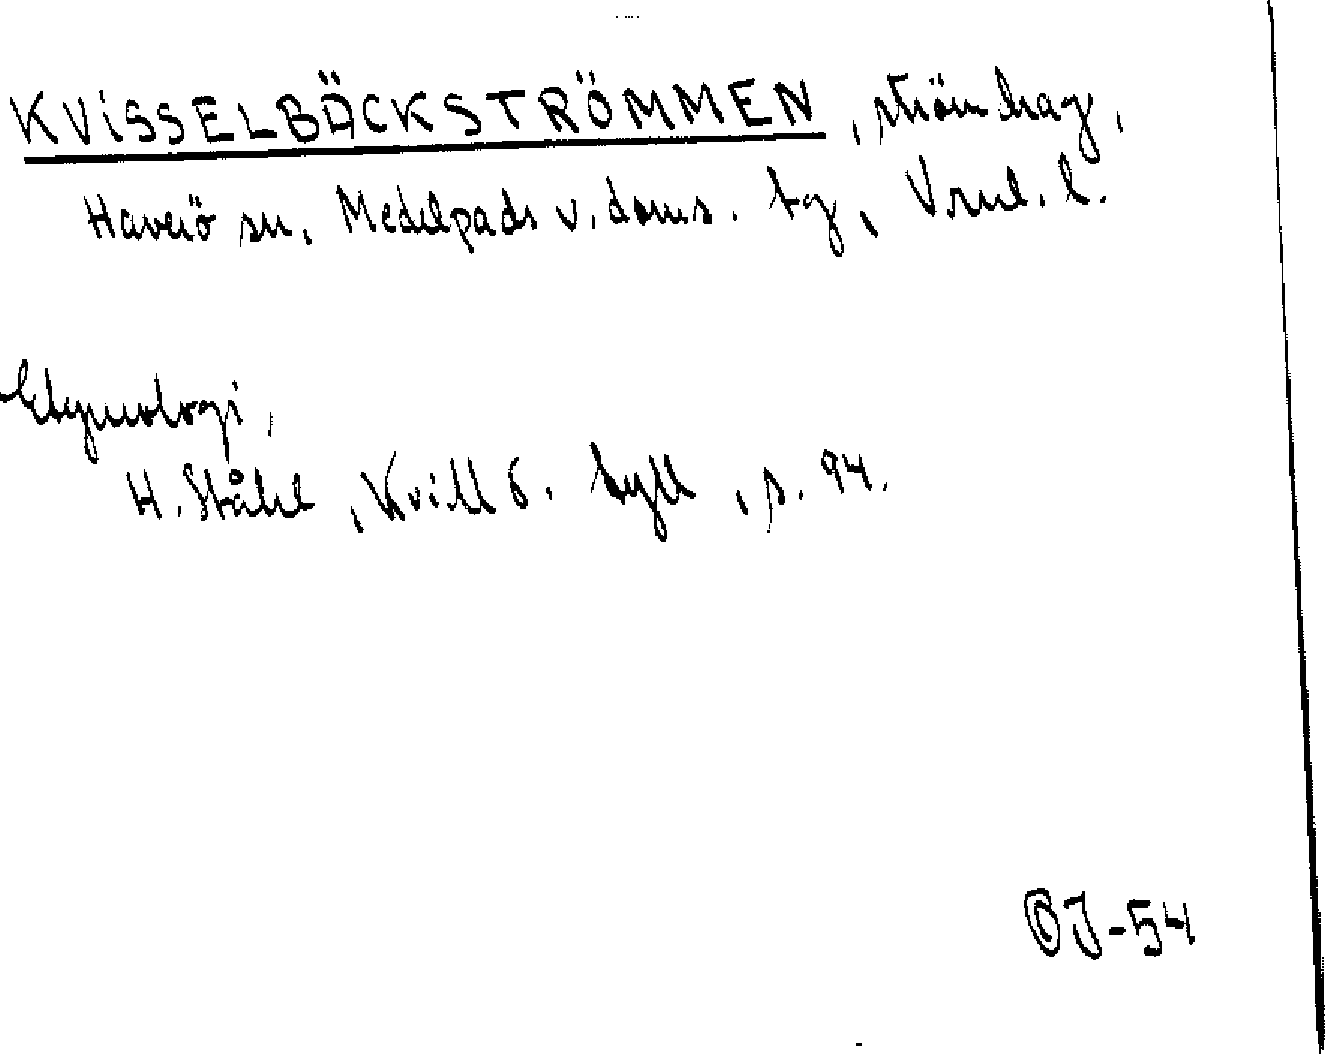 KVISSELBÄCKSTRÖMMEN, strömdrag,
Haverö sn, Medelpads v. doms. tg, V.nrl. l.
Etymologi,
H. Ståhl, Kvill o. tyll, s. 94.
OJ-54